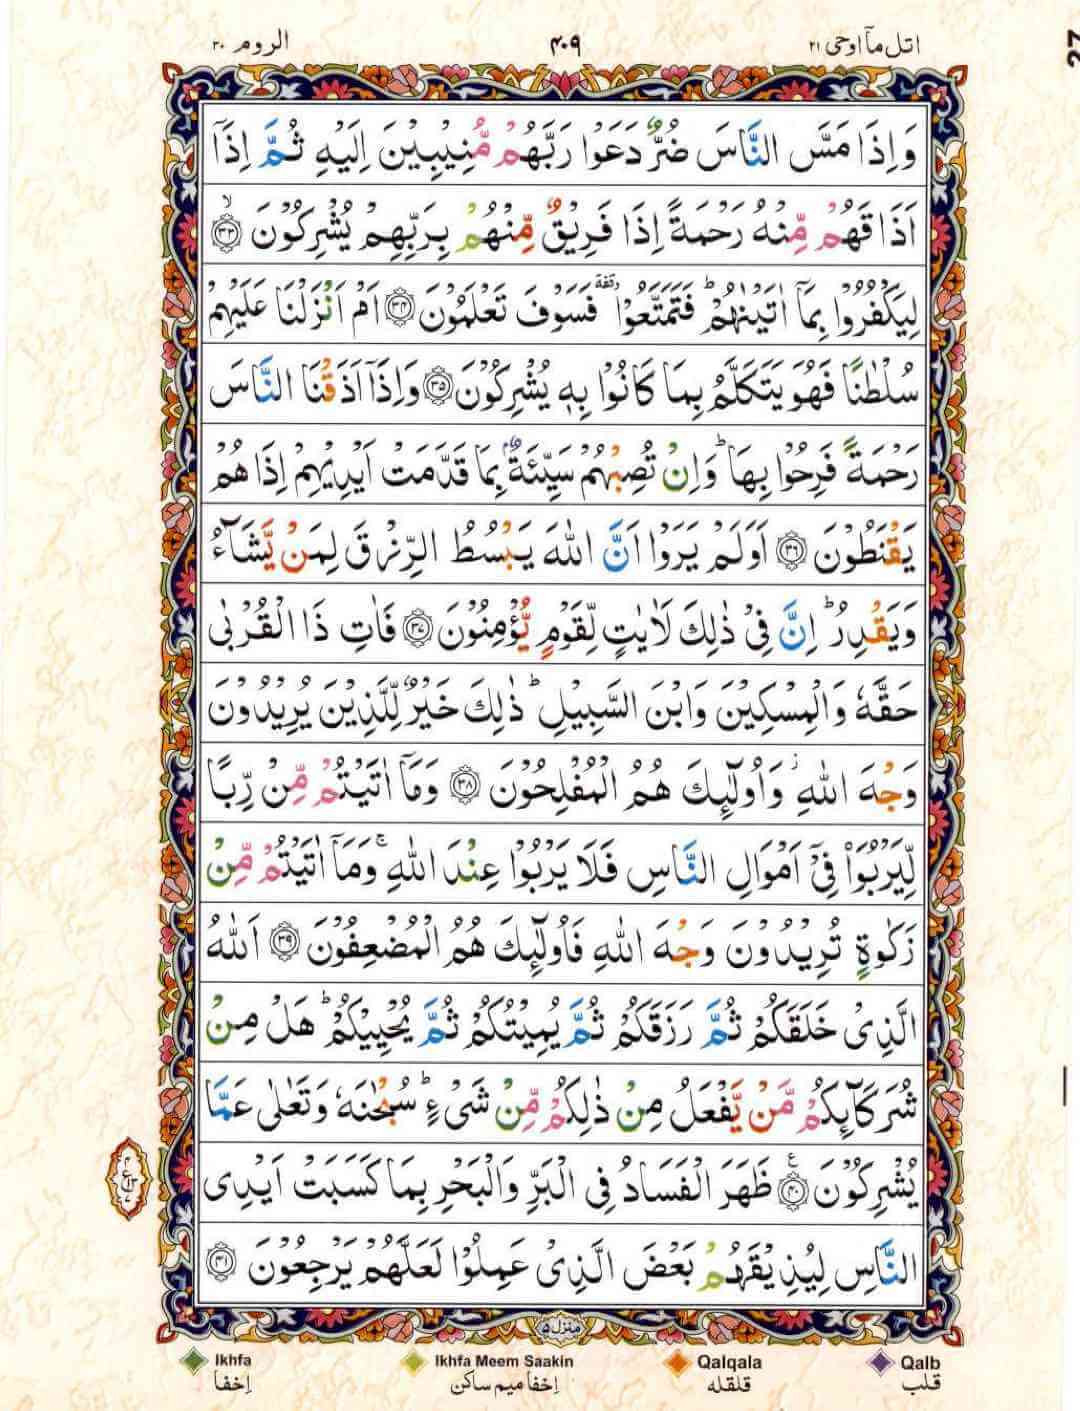 اتل مآ اوحی ۲۱ ۴۰۹ الروم ۳۰
27
وَاِذَا مَسَّ النَّاسَ ضُرٌّ دَعَوْا رَبَّهُمْ مُّنِيْبِيْنَ اِلَيْهِ ثُمَّ اِذَاۤ
اَذَاقَهُمْ مِّنْهُ رَحْمَةً اِذَا فَرِيْقٌ مِّنْهُمْ بِرَبِّهِمْ يُشْرِكُوْنَ ۙ‏﴿۳۳﴾
لِيَكْفُرُوْا بِمَاۤ اٰتَيْنٰهُمْ ؕ فَتَمَتَّعُوْا وقفة فَسَوْفَ تَعْلَمُوْنَ ﴿۳۴﴾ اَمْ اَنْزَلْنَا عَلَيْهِمْ
سُلْطٰنًا فَهُوَ يَتَكَلَّمُ بِمَا كَانُوْا بِهٖ يُشْرِكُوْنَ ﴿۳۵﴾ وَاِذَاۤ اَذَقْنَا النَّاسَ
رَحْمَةً فَرِحُوْا بِهَا ؕ وَاِنْ تُصِبْهُمْ سَيِّئَةٌۢ بِمَا قَدَّمَتْ اَيْدِيْهِمْ اِذَا هُمْ
يَقْنَطُوْنَ ﴿۳۶﴾ اَوَلَمْ يَرَوْا اَنَّ اللّٰهَ يَبْسُطُ الرِّزْقَ لِمَنْ يَّشَآءُ
وَيَقْدِرُ ؕ اِنَّ فِيْ ذٰلِكَ لَاٰيٰتٍ لِّقَوْمٍ يُّؤْمِنُوْنَ ﴿۳۷﴾ فَاٰتِ ذَا الْقُرْبٰى
حَقَّهٗ وَالْمِسْكِيْنَ وَابْنَ السَّبِيْلِ ؕ ذٰلِكَ خَيْرٌ لِّلَّذِيْنَ يُرِيْدُوْنَ
وَجْهَ اللّٰهِ ؗ وَاُولٰٓئِكَ هُمُ الْمُفْلِحُوْنَ ﴿۳۸﴾ وَمَاۤ اٰتَيْتُمْ مِّنْ رِّبًا
لِّيَرْبُوَا۟ فِيْۤ اَمْوَالِ النَّاسِ فَلَا يَرْبُوْا عِنْدَ اللّٰهِ ۚ وَمَاۤ اٰتَيْتُمْ مِّنْ
زَكٰوةٍ تُرِيْدُوْنَ وَجْهَ اللّٰهِ فَاُولٰٓئِكَ هُمُ الْمُضْعِفُوْنَ ﴿۳۹﴾ اَللّٰهُ
الَّذِيْ خَلَقَكُمْ ثُمَّ رَزَقَكُمْ ثُمَّ يُمِيْتُكُمْ ثُمَّ يُحْيِيْكُمْ ؕ هَلْ مِنْ
شُرَكَآئِكُمْ مَّنْ يَّفْعَلُ مِنْ ذٰلِكُمْ مِّنْ شَيْءٍ ؕ سُبْحٰنَهٗ وَتَعٰلٰى عَمَّا
يُشْرِكُوْنَ ﴿۴۰﴾ ع ظَهَرَ الْفَسَادُ فِى الْبَرِّ وَالْبَحْرِ بِمَا كَسَبَتْ اَيْدِى
النَّاسِ لِيُذِيْقَهُمْ بَعْضَ الَّذِيْ عَمِلُوْا لَعَلَّهُمْ يَرْجِعُوْنَ ﴿۴۱﴾
منزل ۵
Ikhfa Ikhfa Meem Saakin Qalqala Qalb
اِخفا اِخفا میم ساکن قلقله قلب